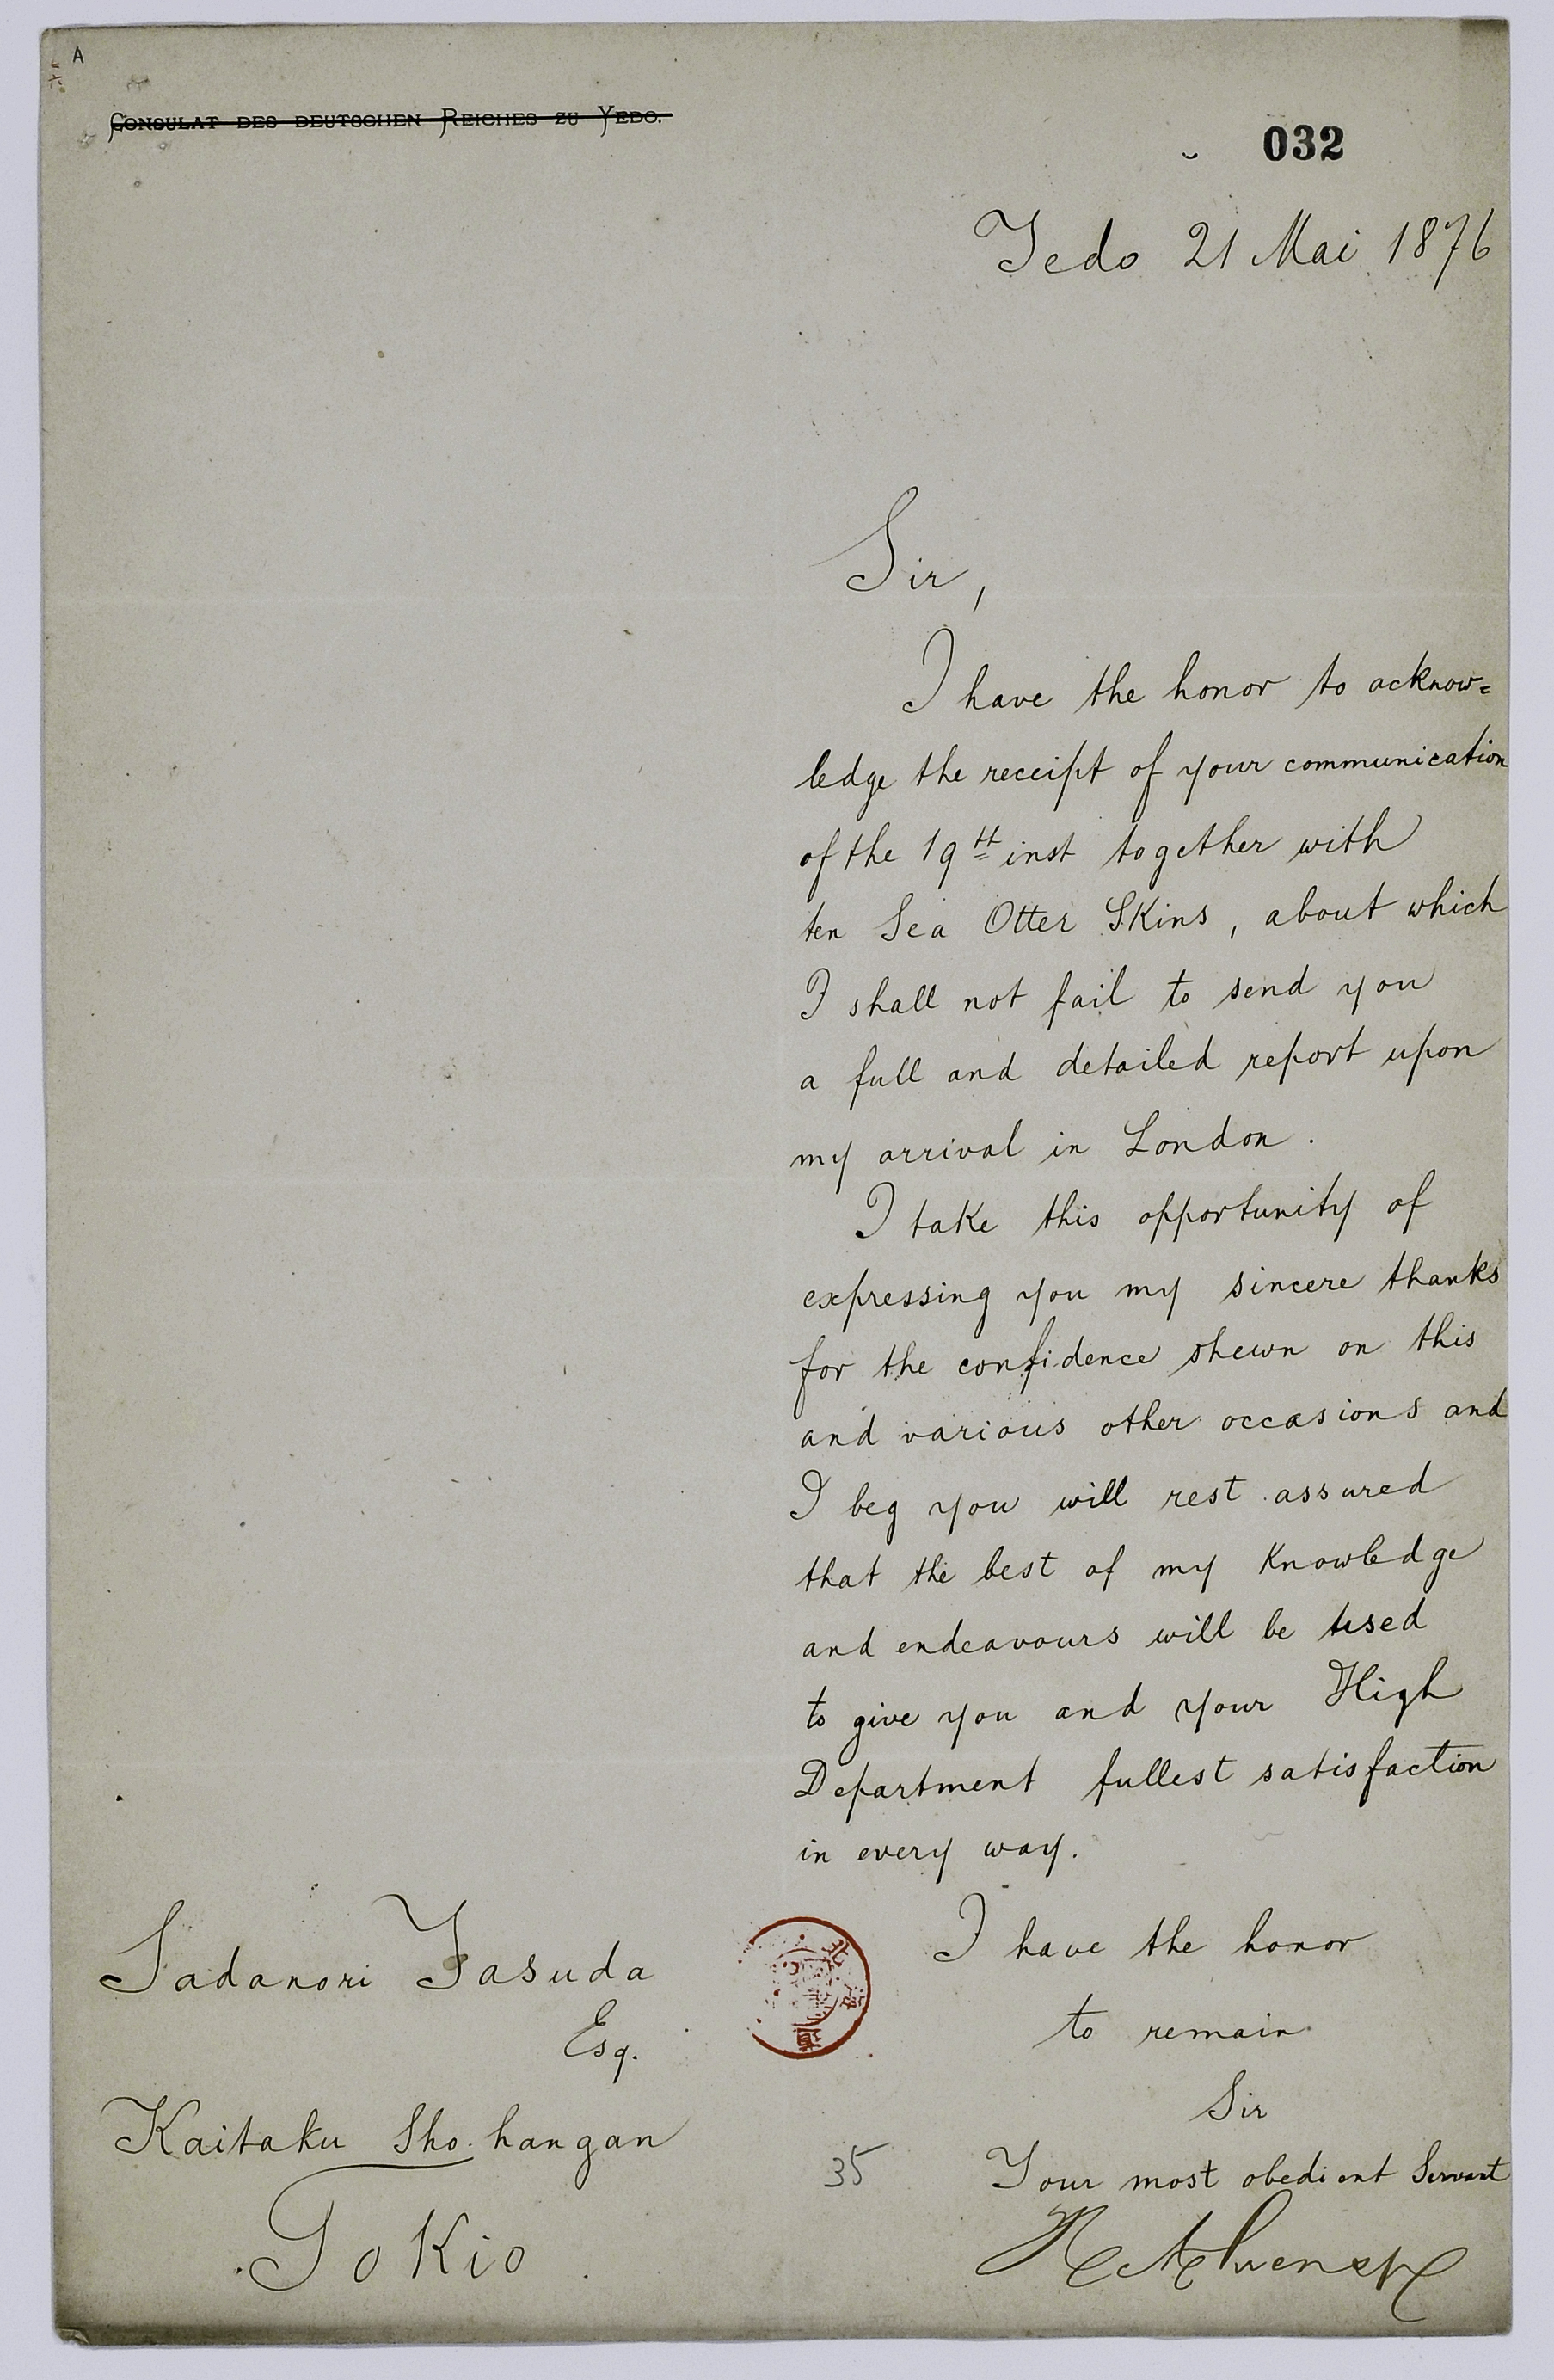 A
CONSULAT DES DEUTSCHEN REICHES ZU YEDO.
032
Yedo 21 Mai 1876
Sir,
I have the honor to acknow=
ledge the receipt of your communication
of the 19th inst together with
ten Sea Otter Skins, about which
I shall not fail to send you
a full and detailed report upon
my arrival in London.
I take this opportunity of
expressing you my sincere thanks
for the confidence shewn on this
and various other occasions and
I beg you will rest assured
that the best of my Knowledge
and endeavours will be used
to give you and your High
Department fullest satisfaction
in every way.
I have the honor
to remain
Sir
Your most obedient Servant
Sadanori Yasuda
Esq.
Kaitaku Sho hangan
Tokio
35